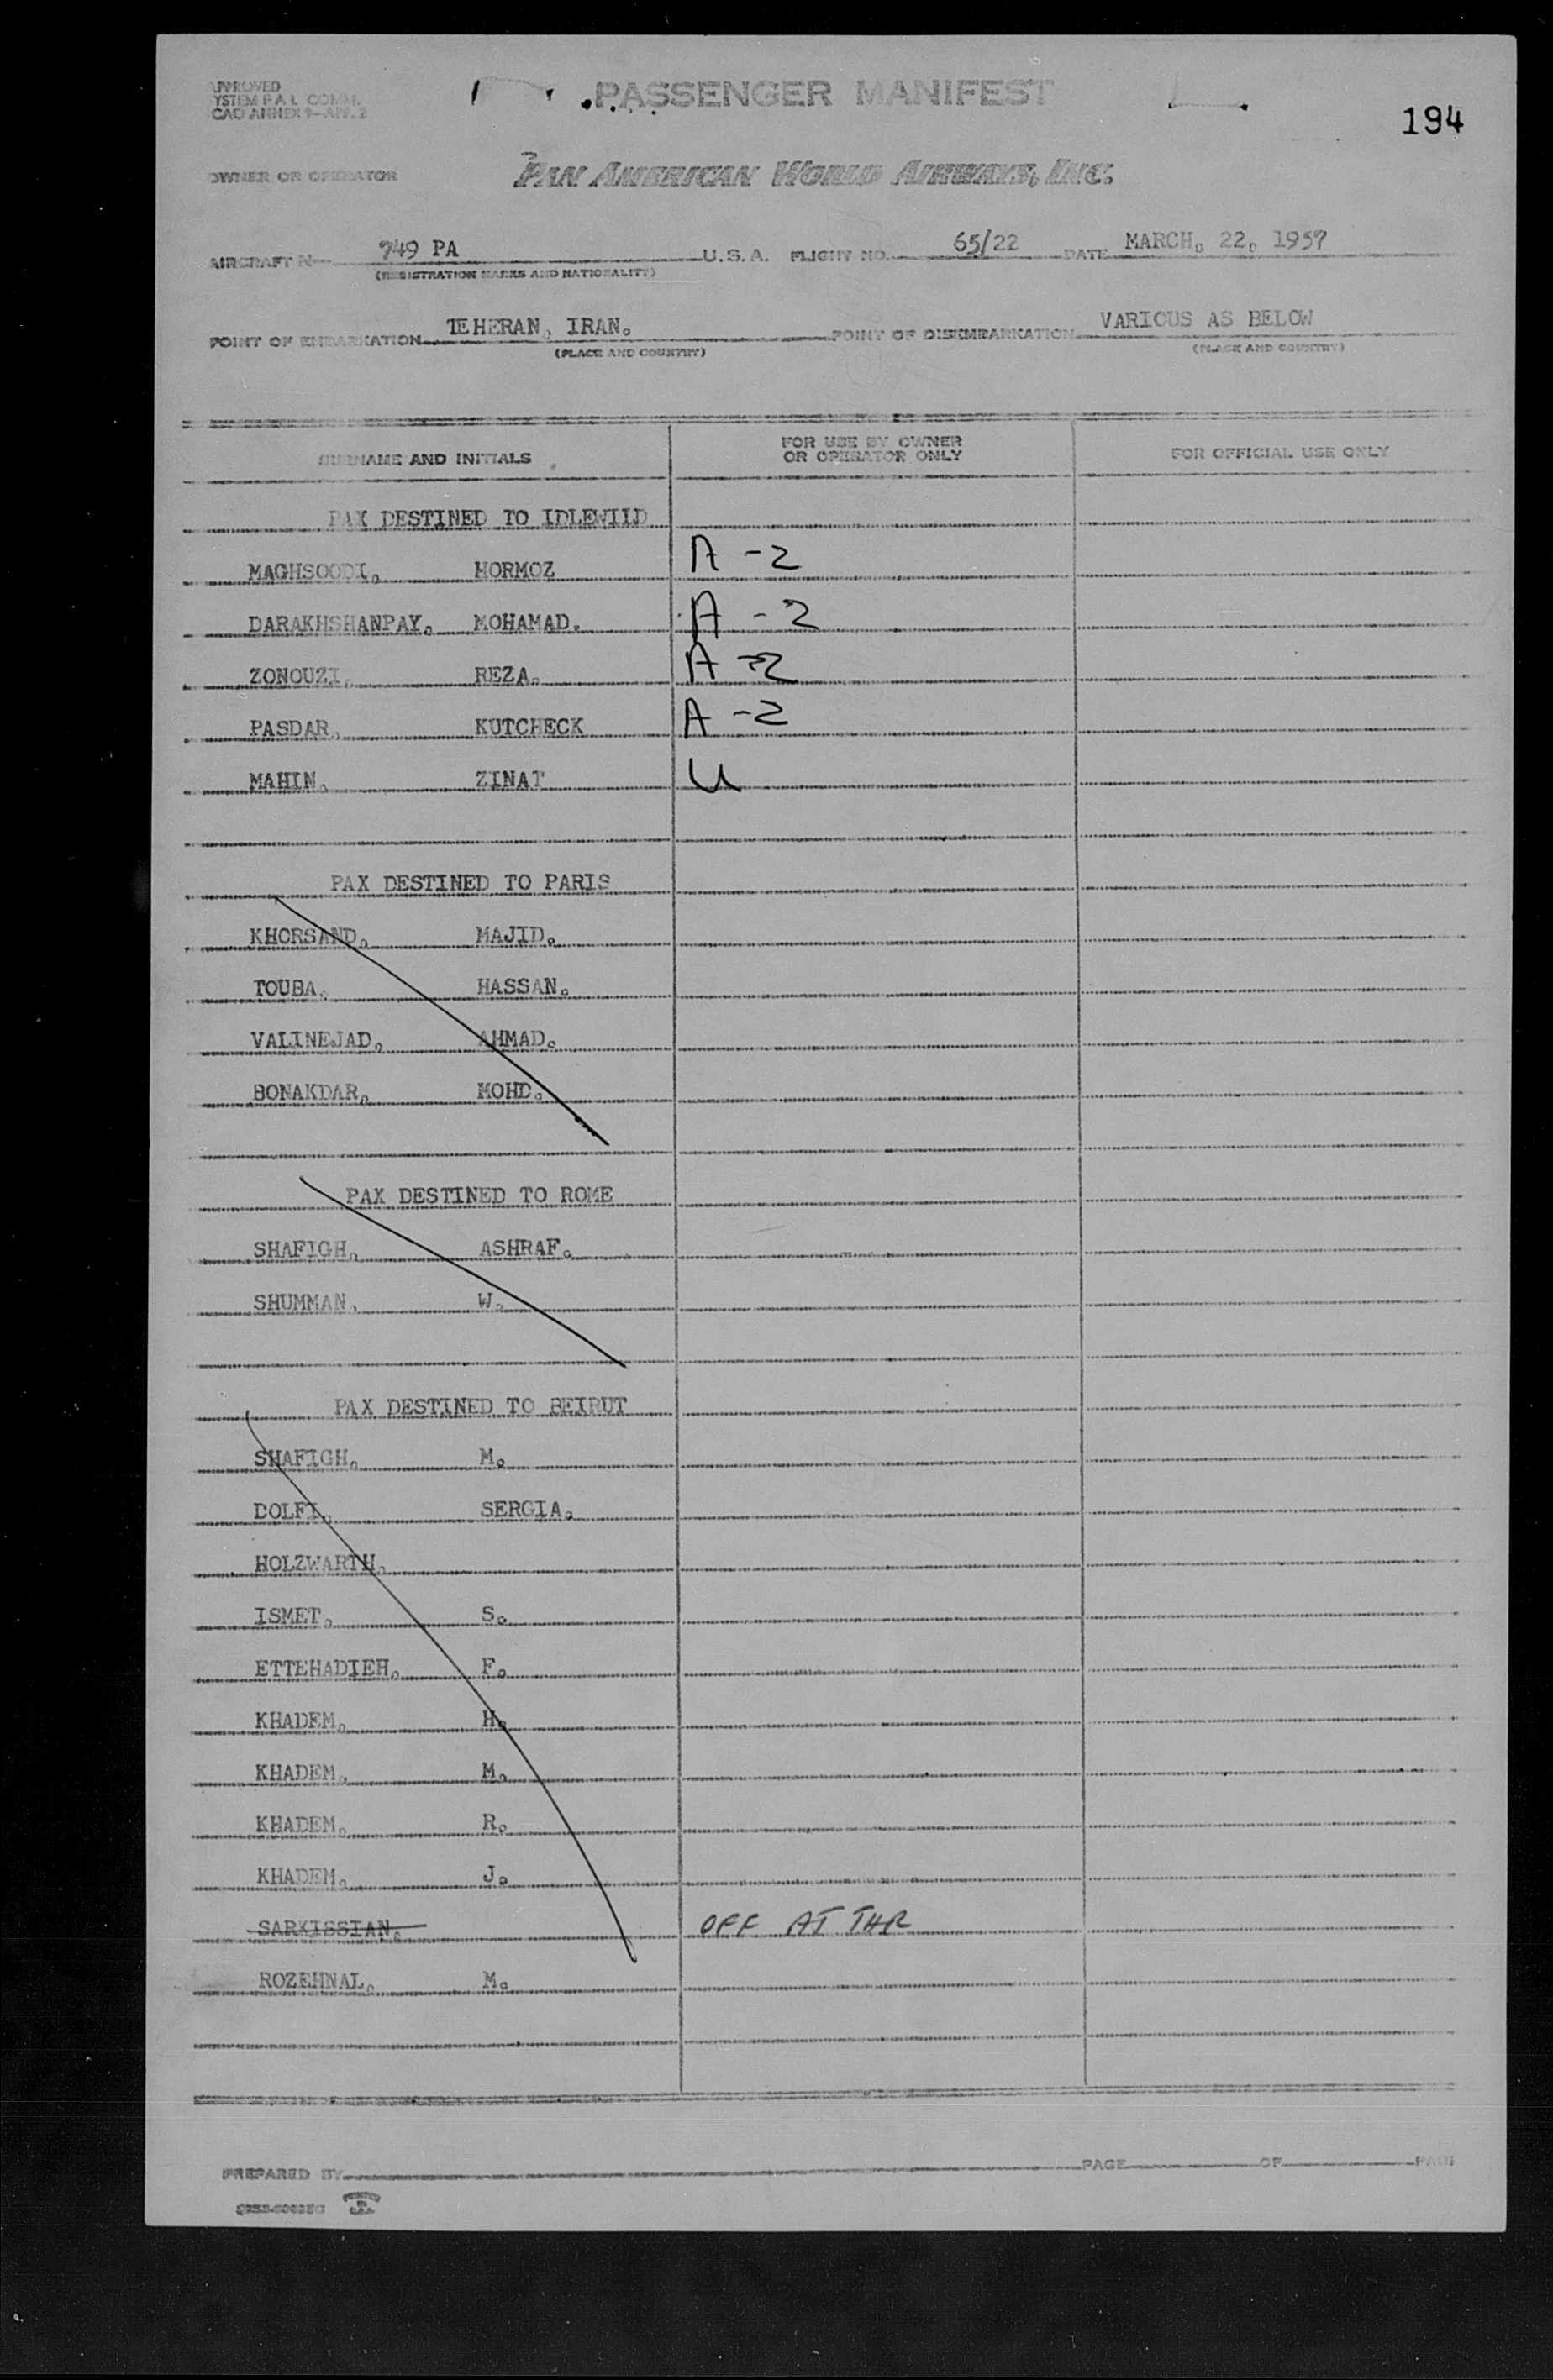 APPROVED
SYSTEM F A L COMM.
ICAO ANNEX 9—APP. 2
PASSENGER MANIFEST
194
OWNER OR OPERATOR
PAN AMERICAN WORLD AIRWAYS, INC.
AIRCRAFT N 749 PA U. S. A. FLIGHT NO. 65/22 DATE MARCH. 22. 1957
(REGISTRATION MARKS AND NATIONALITY)
POINT OF EMBARKATION TEHERAN. IRAN. POINT OF DISEMBARKATION VARIOUS AS BELOW
(PLACE AND COUNTRY) (PLACE AND COUNTRY)
SURNAME AND INITIALS FOR USE BY OWNER OR OPERATOR ONLY FOR OFFICIAL USE ONLY
PAX DESTINED TO IDLEWILD
MAGHSOODI. HORMOZ A-2
DARAKHSHANPAY. MOHAMAD. A-2
ZONOUZI. REZA. A-2
PASDAR. KUTCHECK A-2
MAHIN. ZINAT U
PAX DESTINED TO PARIS
KHORSAND. MAJID.
TOUBA. HASSAN.
VALINEJAD. AHMAD.
BONAKDAR. MOHD.
PAX DESTINED TO ROME
SHAFIGH. ASHRAF.
SHUMMAN. W.
PAX DESTINED TO BEIRUT
SHAFIGH. M.
DOLFI. SERGIA.
HOLZWARTH.
ISMET. S.
ETTEHADIEH. F.
KHADEM. H.
KHADEM. M.
KHADEM. R.
KHADEM. J.
SARKISSIAN. OFF AT THR
ROZEHNAL. M.
PREPARED BY PAGE OF PAGE